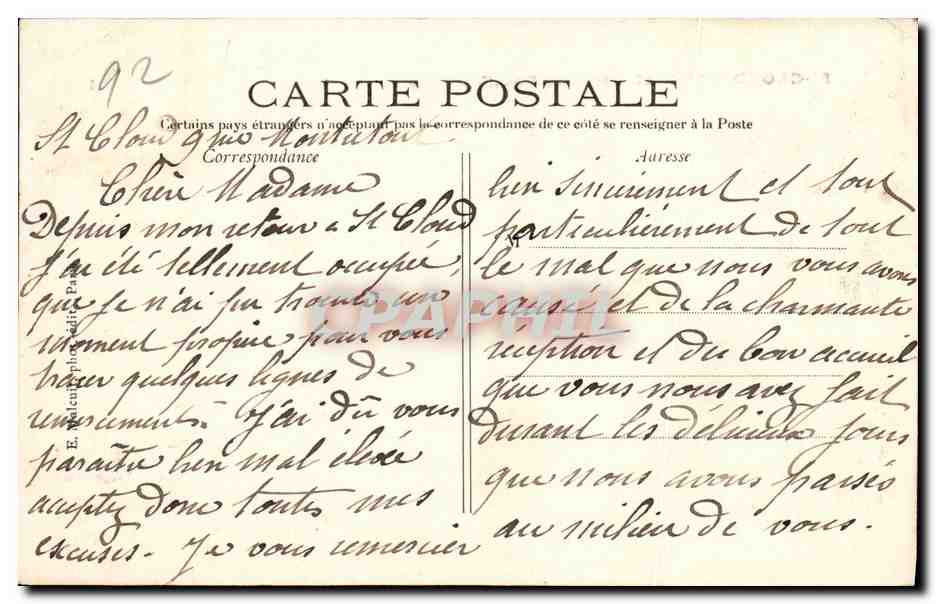 92
CARTE POSTALE
Certains pays étrangers n'acceptant pas la correspondance de ce côté se renseigner à la Poste
St Cloud 9 rue Montretout
Correspondance
Chère Madame
Depuis mon retour à St Cloud
j'ai été tellement occupée,
que je n'ai pu trouver un
moment propice pour vous
tracer quelques lignes de
remerciements. J'ai dû vous
paraître bien mal élevée
acceptez donc toutes mes
excuses. Je vous remercier
Adresse
bien sincèrement et tout
particulièrement de tout
le mal que nous vous avons
causé et de la charmante
réception et du bon accueil
que vous nous avez fait
durant les délicieux jours
que nous avons passés
au milieu de vous.
E. Malcuit, phot. édit. Paris
CPAPHIL